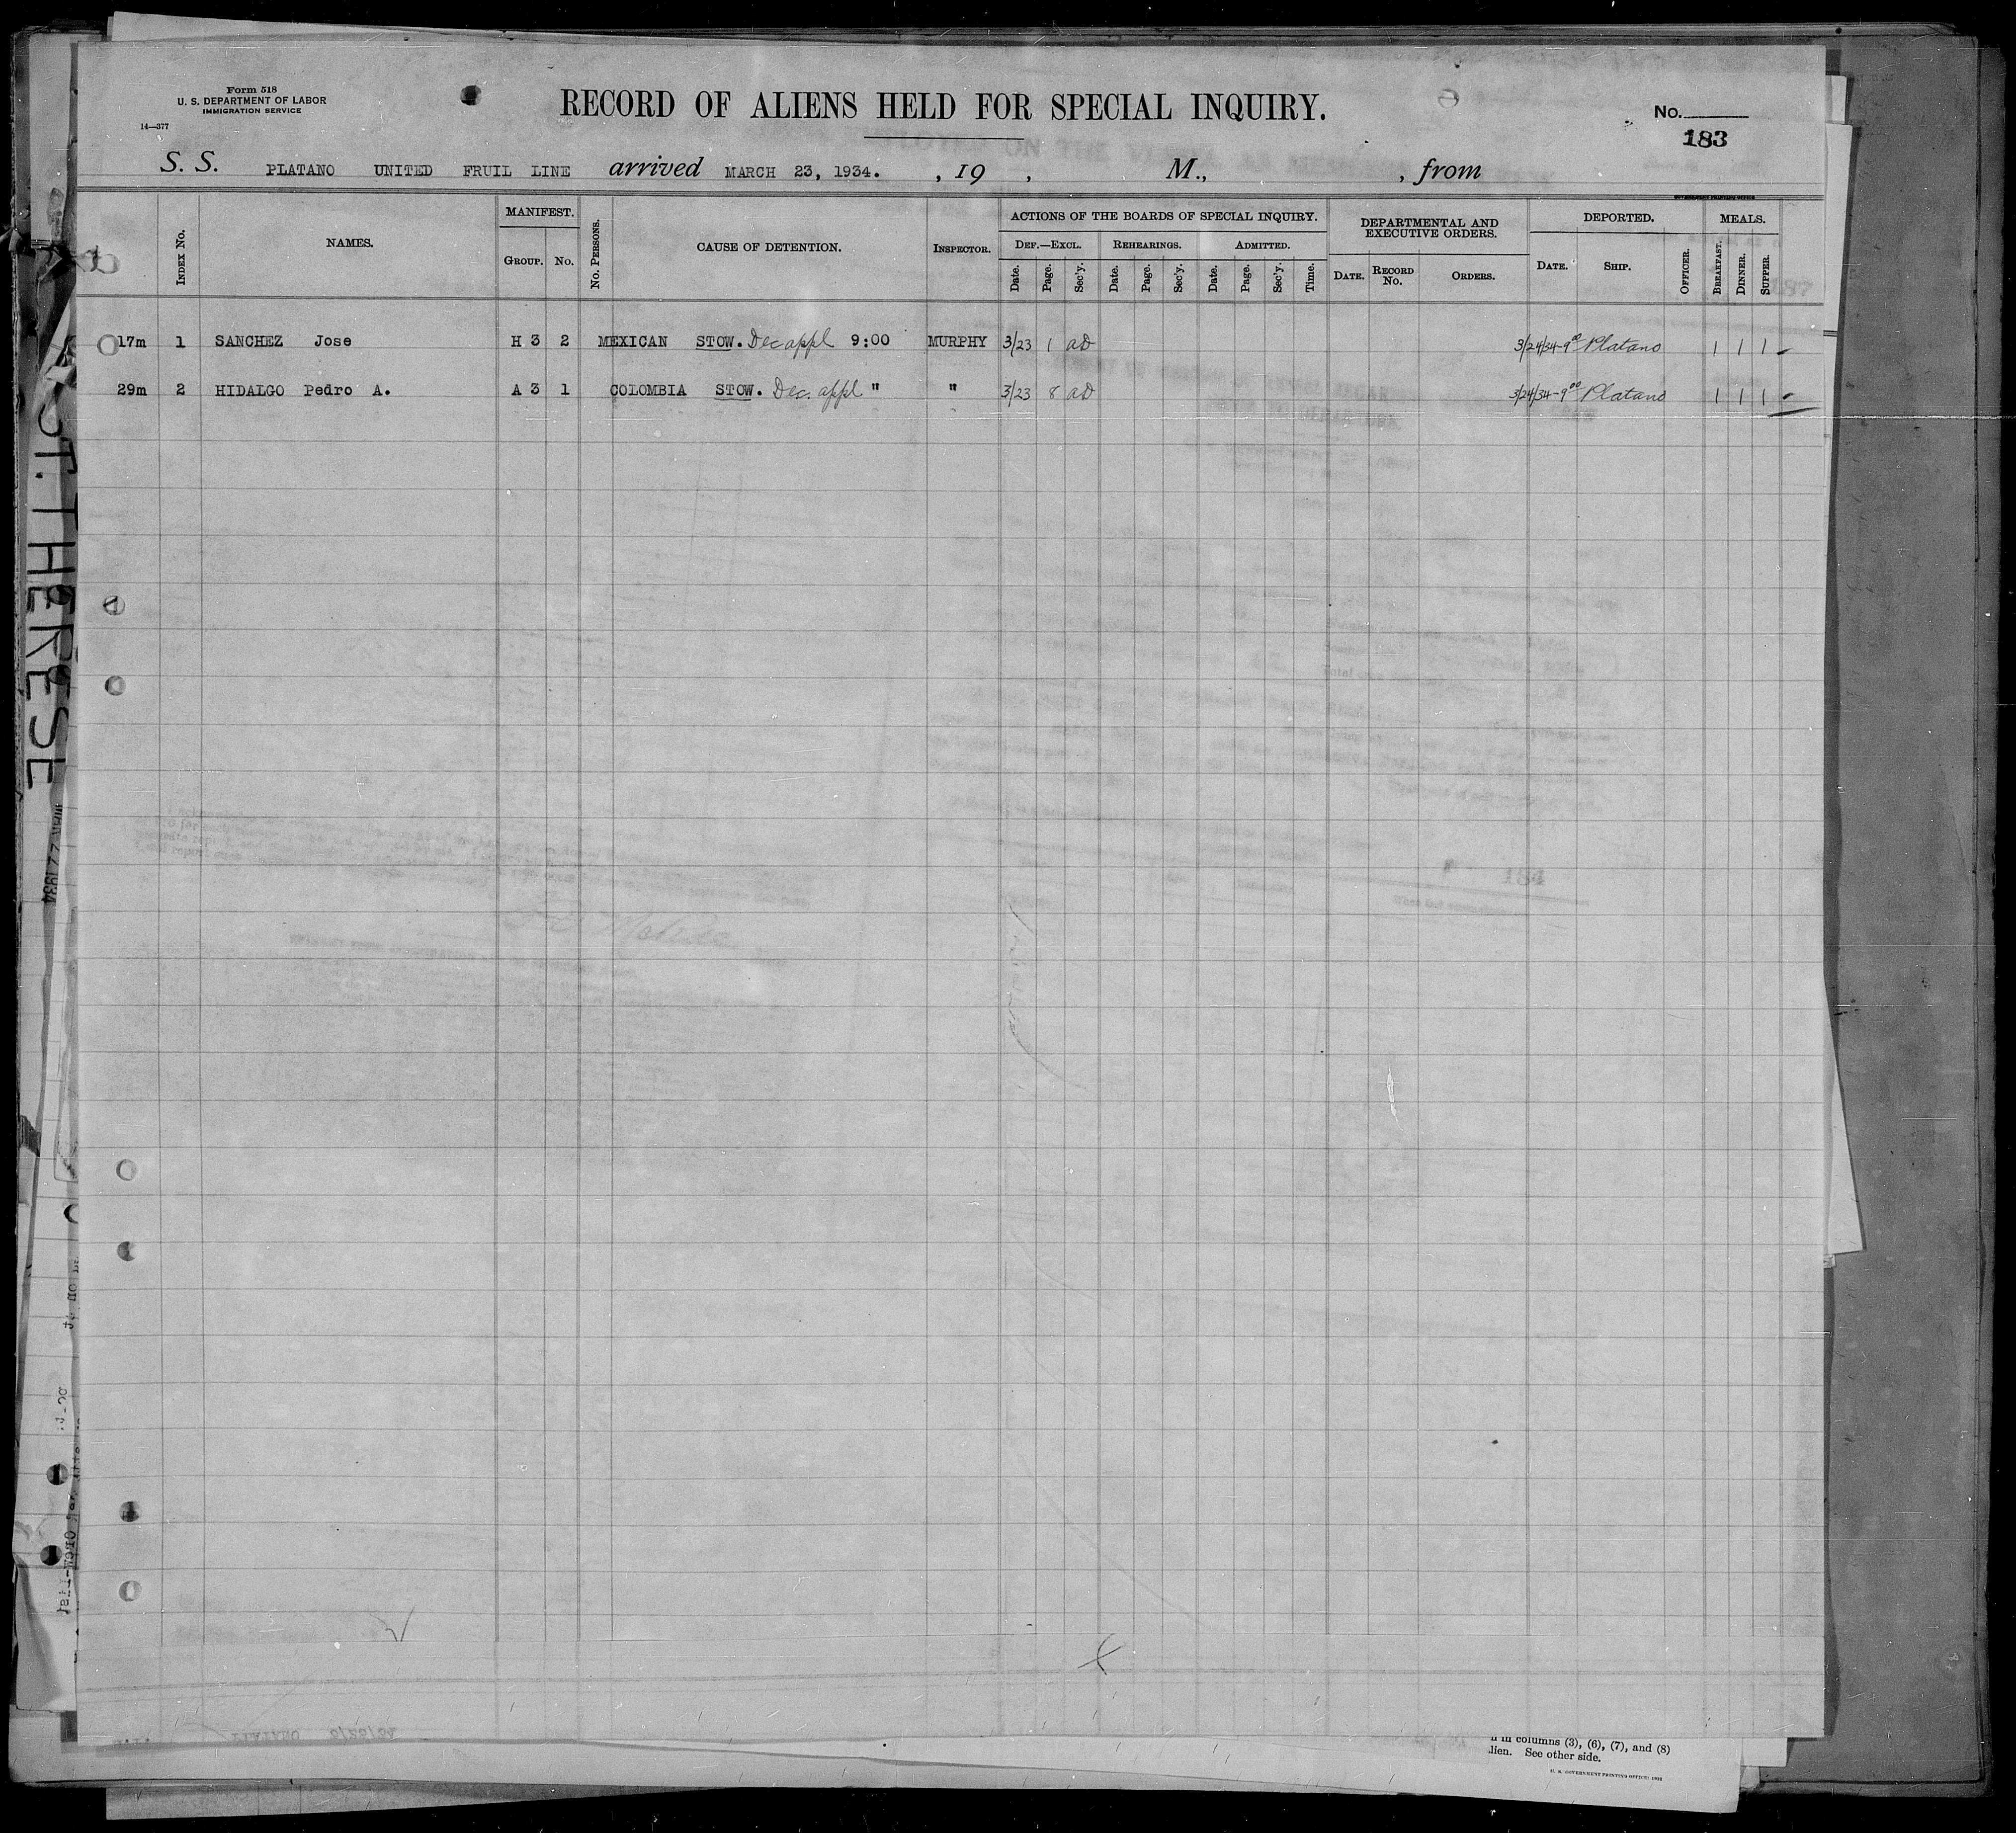 Form 518
U. S. DEPARTMENT OF LABOR
IMMIGRATION SERVICE
14—377
RECORD OF ALIENS HELD FOR SPECIAL INQUIRY.
No.
183
S. S. PLATANO UNITED FRUIL LINE arrived MARCH 23, 1934. , 19 , M., , from
INDEX No. NAMES. MANIFEST. GROUP. No. No. PERSONS. CAUSE OF DETENTION. INSPECTOR. ACTIONS OF THE BOARDS OF SPECIAL INQUIRY. DEPARTMENTAL AND EXECUTIVE ORDERS. DEPORTED. MEALS.
DEF.—EXCL. REHEARINGS. ADMITTED.
Date. Page. Sec'y. Date. Page. Sec'y. Date. Page. Sec'y. Time. DATE. RECORD No. ORDERS. DATE. SHIP. OFFICER. BREAKFAST. DINNER. SUPPER.
17m 1 SANCHEZ Jose H 3 2 MEXICAN STOW. Dec appl 9:00 MURPHY 3/23 1 aD 3/24/34-9 00 Platano 1 1 1
29m 2 HIDALGO Pedro A. A 3 1 COLOMBIA STOW. Dec. appl " " 3/23 8 aD 3/24/34-9 00 Platano 1 1 1
ST. THERESE
1934
184
PLATANO
in columns (3), (6), (7), and (8)
See other side.
U. S. GOVERNMENT PRINTING OFFICE